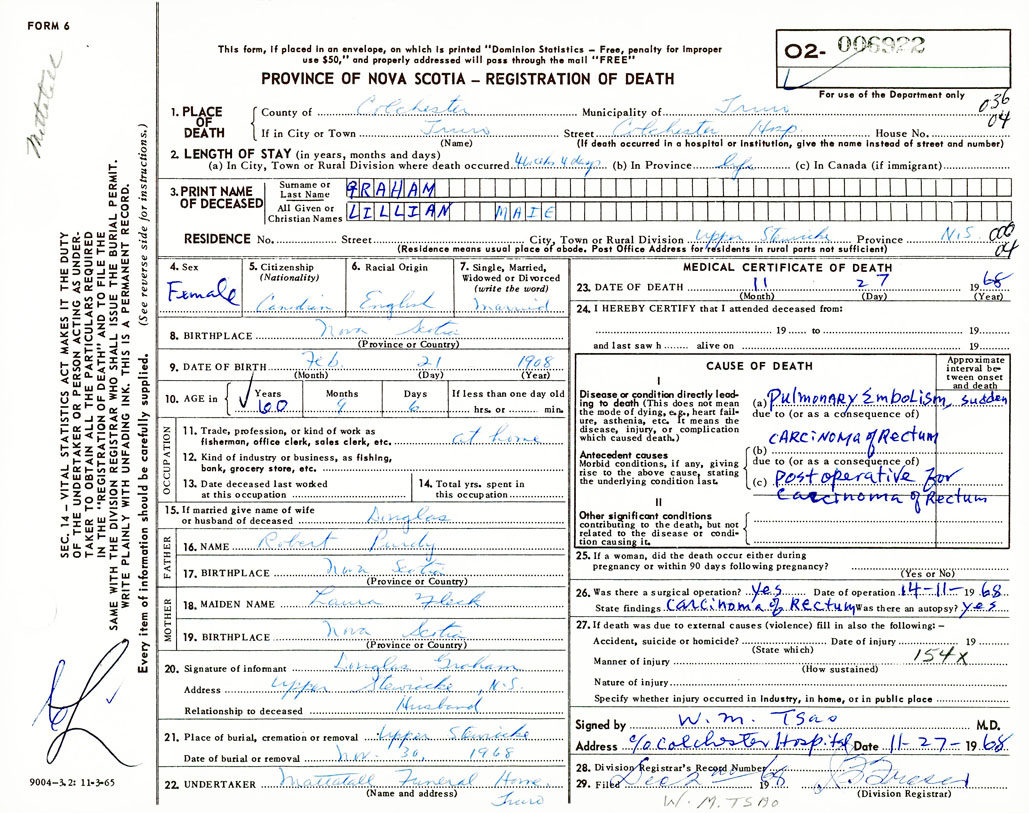 FORM 6
Mattatall
This form, if placed in an envelope, on which is printed "Dominion Statistics – Free, penalty for improper
use $50," and properly addressed will pass through the mail "FREE"
PROVINCE OF NOVA SCOTIA – REGISTRATION OF DEATH
02- 006922
For use of the Department only
036
04
1. PLACE OF DEATH
County of Colchester Municipality of Truro
If in City or Town Truro Street Colchester Hosp. House No.
(Name) (If death occurred in a hospital or institution, give the name instead of street and number)
2. LENGTH OF STAY (in years, months and days)
(a) In City, Town or Rural Division where death occurred 4 wks 4 days (b) In Province Life (c) In Canada (if immigrant)
3. PRINT NAME OF DECEASED
Surname or Last Name GRAHAM
All Given or Christian Names LILLIAN MAIE
RESIDENCE No. Street City, Town or Rural Division Upper Stewiacke Province N.S. 000
(Residence means usual place of abode. Post Office Address for residents in rural parts not sufficient) 04
4. Sex Female
5. Citizenship (Nationality) Canadian
6. Racial Origin English
7. Single, Married, Widowed or Divorced (write the word) Married
8. BIRTHPLACE Nova Scotia
(Province or Country)
9. DATE OF BIRTH Feb. 21 1908
(Month) (Day) (Year)
10. AGE in Years Months Days If less than one day old
60 9 6 hrs. or min.
OCCUPATION
11. Trade, profession, or kind of work as
fisherman, office clerk, sales clerk, etc. at home
12. Kind of industry or business, as fishing,
bank, grocery store, etc.
13. Date deceased last worked
at this occupation
14. Total yrs. spent in
this occupation
15. If married give name of wife
or husband of deceased Douglas
FATHER
16. NAME Robert Purdy
17. BIRTHPLACE Nova Scotia
(Province or Country)
MOTHER
18. MAIDEN NAME Laura Fleck
19. BIRTHPLACE Nova Scotia
(Province or Country)
20. Signature of informant Douglas Graham
Address Upper Stewiacke, N.S.
Relationship to deceased Husband
21. Place of burial, cremation or removal Upper Stewiacke
Date of burial or removal Nov. 30, 1968
22. UNDERTAKER Mattatall Funeral Home,
(Name and address) Truro
MEDICAL CERTIFICATE OF DEATH
23. DATE OF DEATH 11 27 1968
(Month) (Day) (Year)
24. I HEREBY CERTIFY that I attended deceased from:
19 to 19
and last saw h alive on 19
CAUSE OF DEATH
Approximate interval between onset and death
I
Disease or condition directly leading to death (This does not mean the mode of dying, e.g., heart failure, asthenia, etc. It means the disease, injury, or complication which caused death.)
(a) Pulmonary Embolism, sudden
due to (or as a consequence of)
Antecedent causes
Morbid conditions, if any, giving rise to the above cause, stating the underlying condition last.
CARCINOMA of Rectum
(b)
due to (or as a consequence of)
(c) Postoperative for
Carcinoma of Rectum
II
Other significant conditions
contributing to the death, but not related to the disease or condition causing it.
25. If a woman, did the death occur either during
pregnancy or within 90 days following pregnancy?
(Yes or No)
26. Was there a surgical operation? Yes Date of operation 14-11-1968
State findings Carcinoma of Rectum Was there an autopsy? yes
27. If death was due to external causes (violence) fill in also the following: –
Accident, suicide or homicide? Date of injury 19
(State which) 154X
Manner of injury
(How sustained)
Nature of injury
Specify whether injury occurred in Industry, in home, or in public place
Signed by W. M. Tsao M.D.
Address c/o Colchester Hospital Date 11-27-1968
28. Division Registrar's Record Number
29. Filed Dec 2nd 1968
(Division Registrar)
W. M. TSAO
SEC. 14 – VITAL STATISTICS ACT MAKES IT THE DUTY
OF THE UNDERTAKER OR PERSON ACTING AS UNDER-
TAKER TO OBTAIN ALL THE PARTICULARS REQUIRED
IN THE "REGISTRATION OF DEATH" AND TO FILE THE
SAME WITH THE DIVISION REGISTRAR WHO SHALL ISSUE THE BURIAL PERMIT.
WRITE PLAINLY WITH UNFADING INK. THIS IS A PERMANENT RECORD.
Every item of information should be carefully supplied. (See reverse side for instructions.)
9004-3.2: 11-3-65